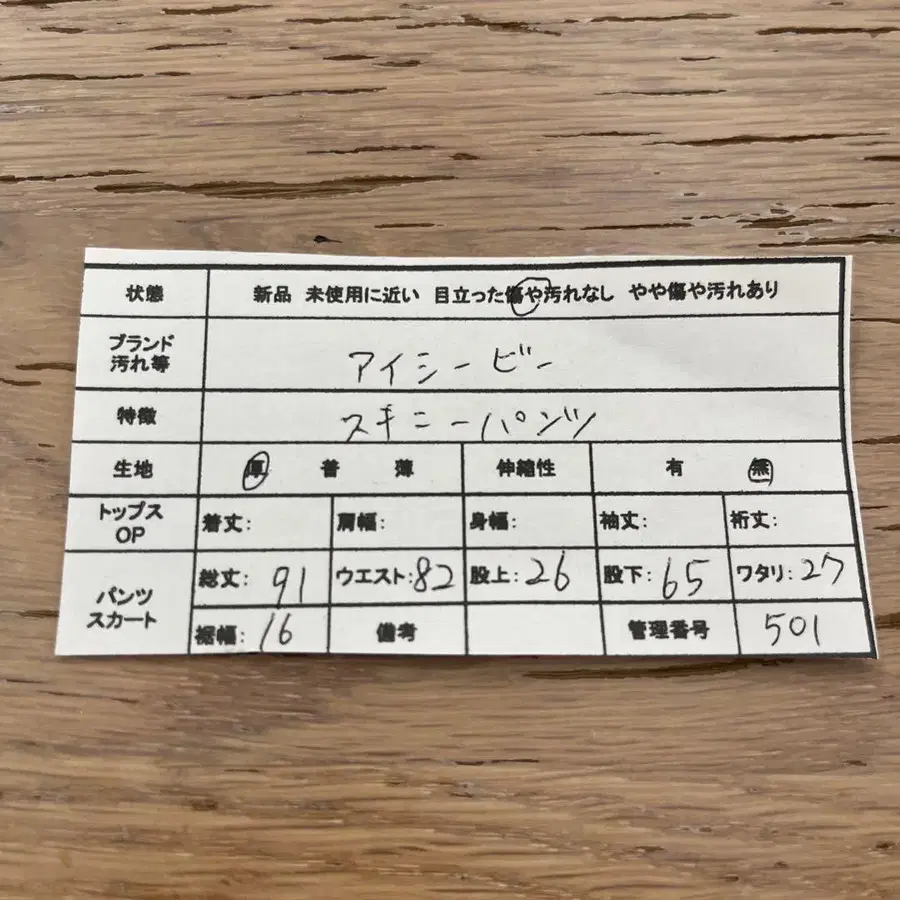 状態 新品 未使用に近い 目立った傷や汚れなし やや傷や汚れあり
ブランド
汚れ等 アイシービー
特徴 スキニーパンツ
生地 厚 普 薄 伸縮性 有 無
トップス
OP 着丈: 肩幅: 身幅: 袖丈: 裄丈:
パンツ
スカート 総丈:91 ウエスト:82 股上:26 股下:65 ワタリ:27
裾幅:16 備考 管理番号 501